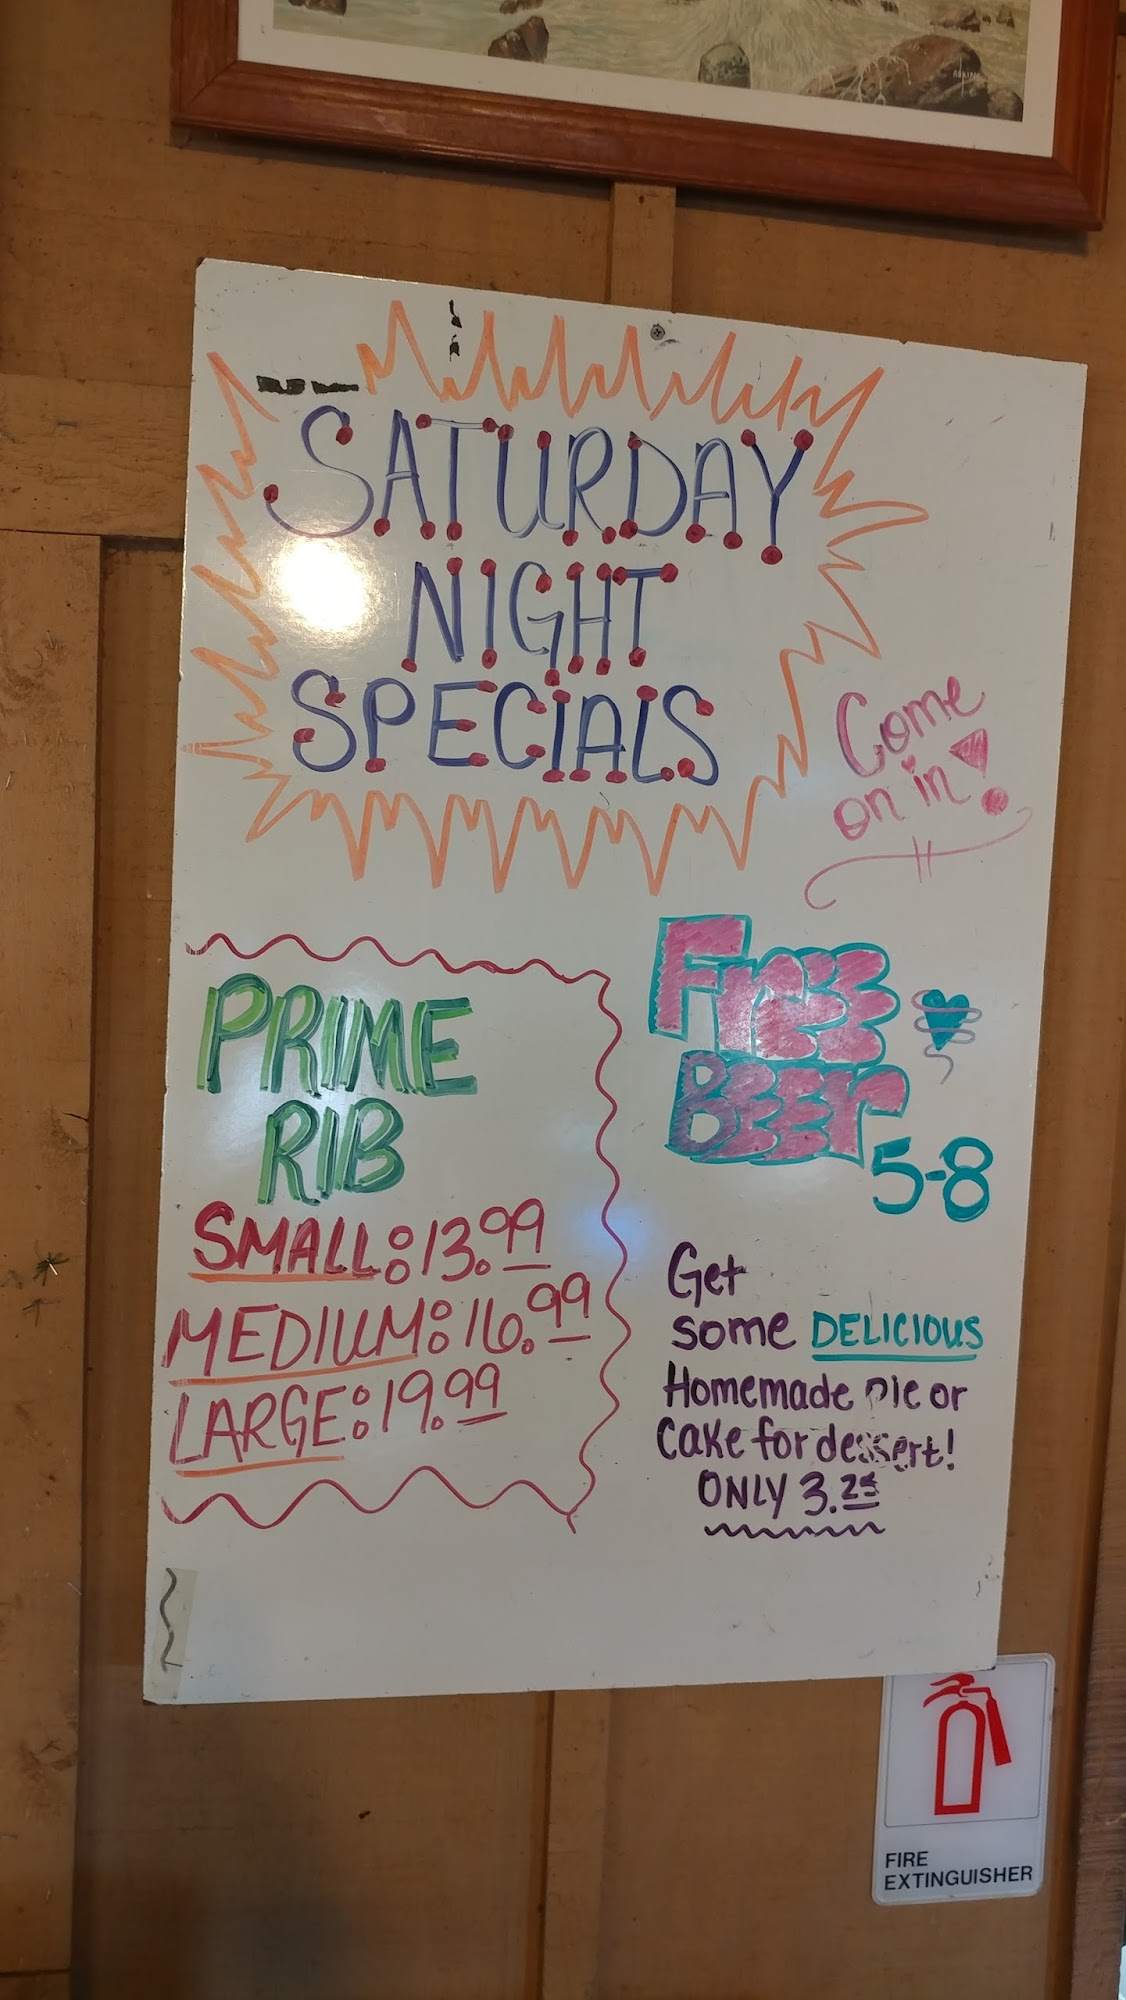 SATURDAY
NIGHT
SPECIALS
Come
on in!
PRIME
RIB
SMALL: 13.99
MEDIUM: 16.99
LARGE: 19.99
Free
Beer
5-8
Get
some DELICIOUS
Homemade Pie or
Cake for dessert!
ONLY 3.25
FIRE
EXTINGUISHER